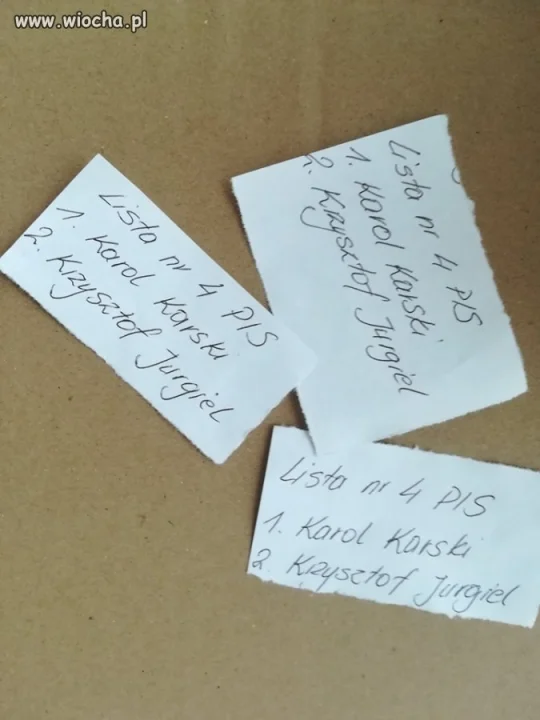 www.wiocha.pl
Lista nr 4 PIS
1. Karol Karski
2. Krzysztof Jurgiel
Lista nr 4 PIS
1. Karol Karski
2. Krzysztof Jurgiel
Lista nr 4 PIS
1. Karol Karski
2. Krzysztof Jurgiel